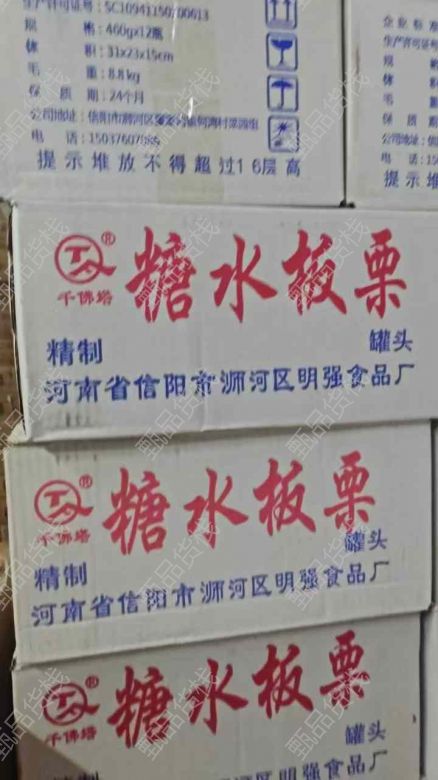 生产许可证号：SC10941150200613
规 格：460g×12瓶
体 积：31×23×15cm
毛 重：8.8kg
保 质 期：24个月
电 话：15037607985
提示堆放不得超过16层高
企业标准
生产许可证号
规
体
毛
保 质
公司地址
电
提示堆
千佛塔®
糖水板栗
精制
罐头
河南省信阳市浉河区明强食品厂
千佛塔®
糖水板栗
精制
罐头
河南省信阳市浉河区明强食品厂
千佛塔®
糖水板栗
精制
罐头
甄品货栈